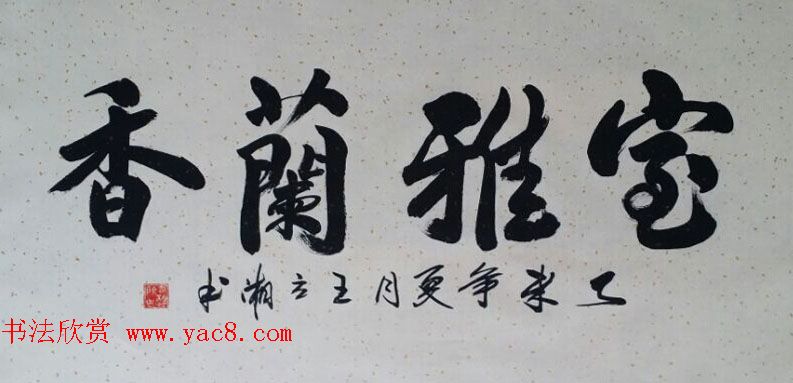 室雅蘭香
王立湘书
书法欣赏 www.yac8.com